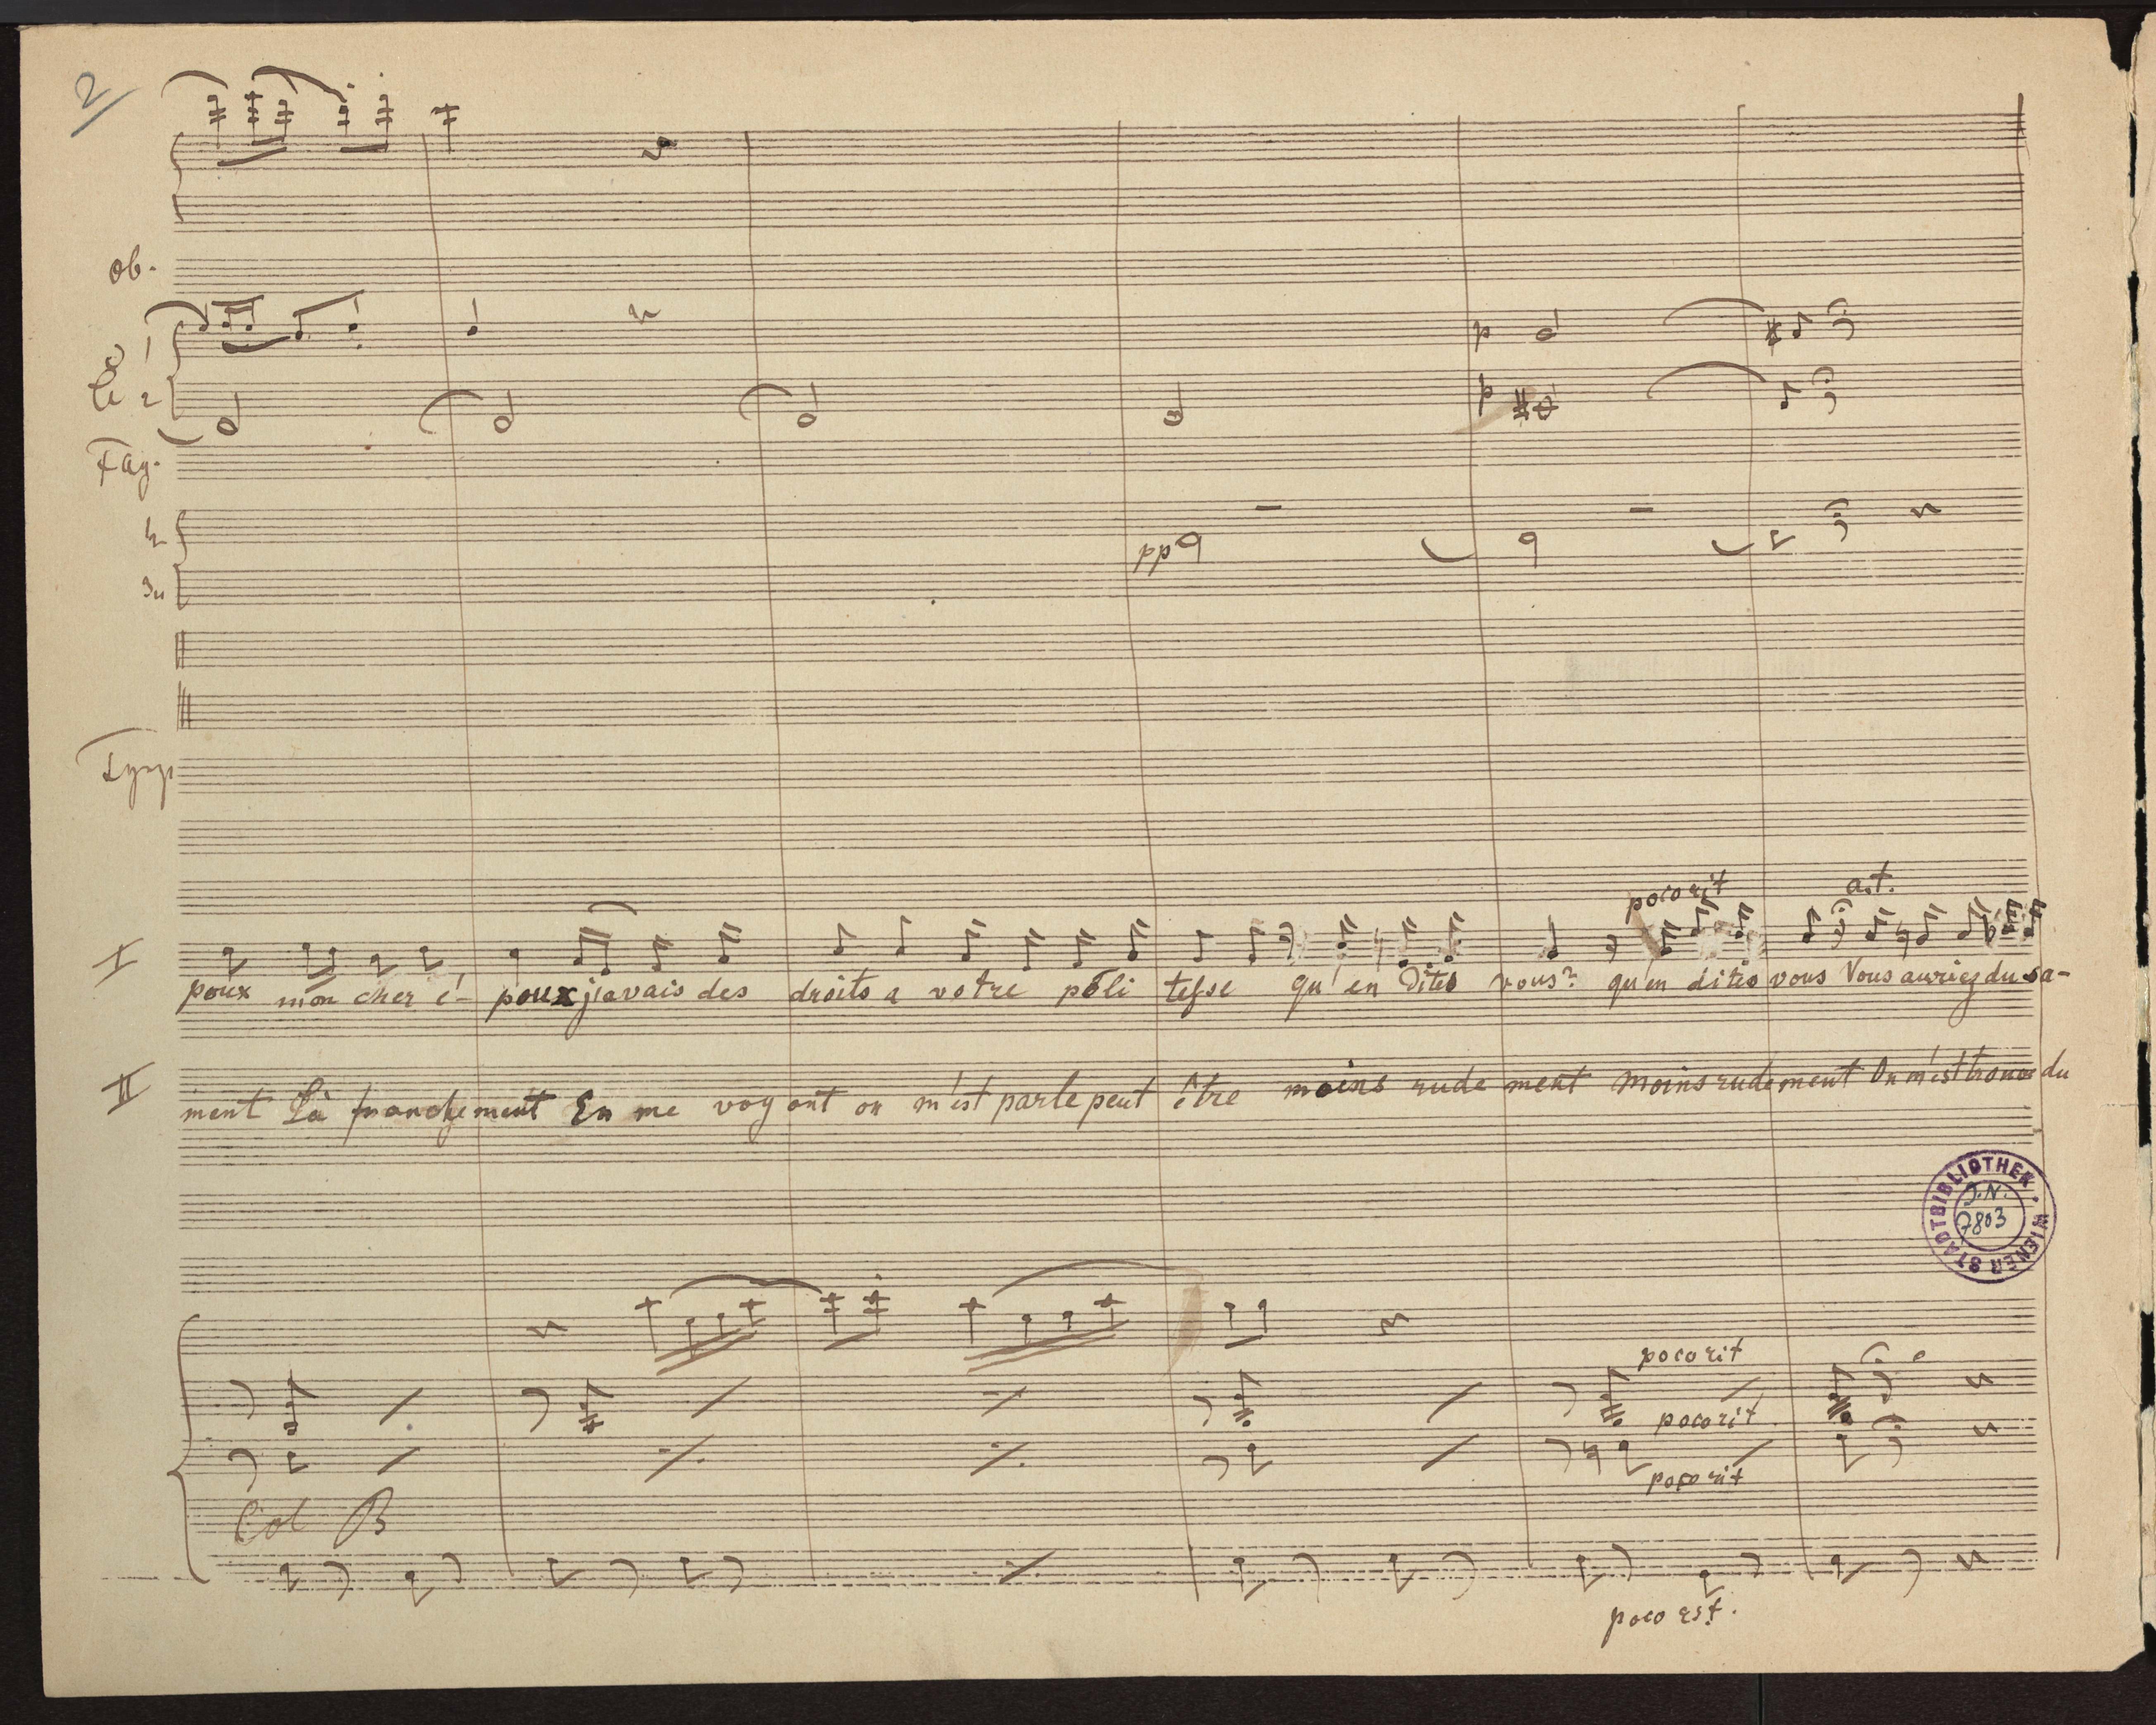 2
Ob.
1
Cl 2
p
p
Fag.
pp
Tymp
poco rit
a.t.
I
poux mon cher é- poux j'avais des droits a votre poli tesse qu'en dites vous? qu'en dites vous Vous auriez du sa-
II
ment Là franchement En me voyant on m'est parle peut être moins rude ment moins rudement On m'est trouve du
STADTBIBLIOTHEK · WIENER
J.N.
7803
poco rit
poco rit.
poco rit
Col B
poco rit.